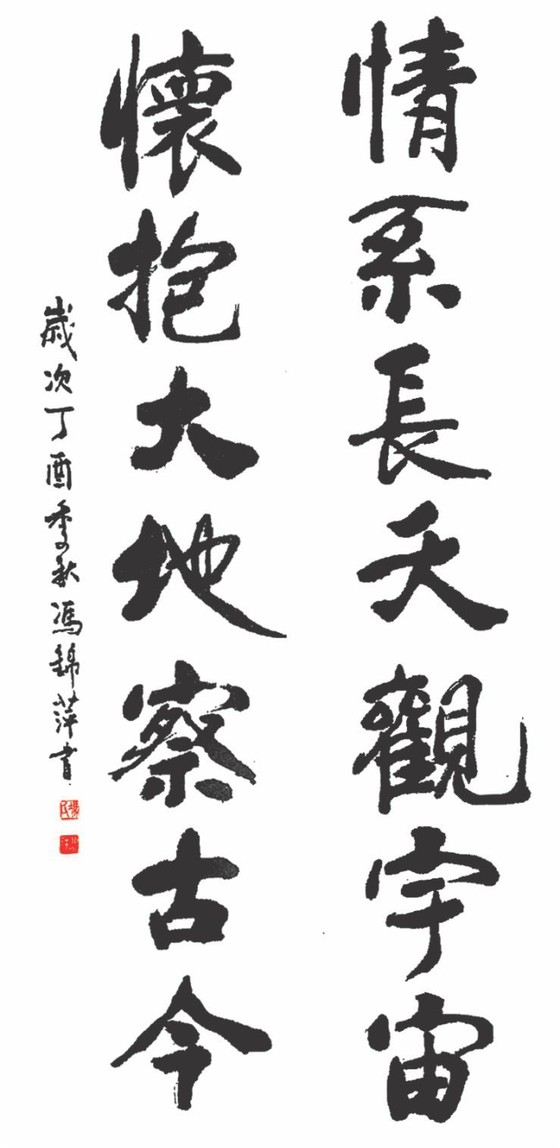 情系長天觀宇宙
懷抱大地察古今
歲次丁酉季秋馮錦萍書